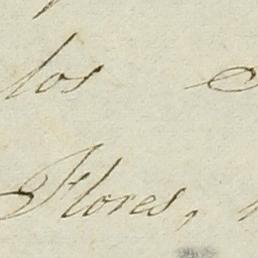 los
Flores,